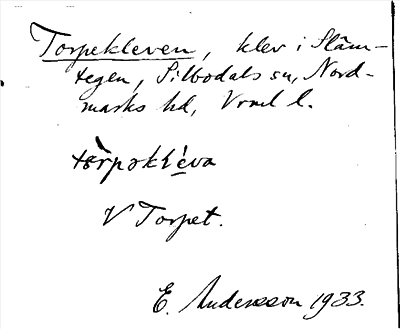 Torpekleven, klev i Släm-
tegen, Silbodals sn, Nord-
marks hd, Vrml l.
tɵ̀rpəkle̱va
V Torpet.
E. Andersson 1933.